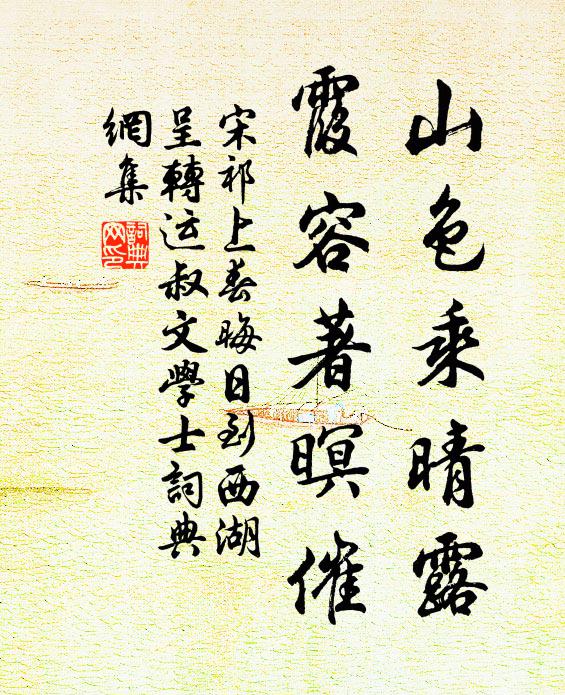 山色乘晴露
霞容著暝催
宋祁上春晦日到西湖
呈轉运叔文學士詞典
網集
詞典
网印